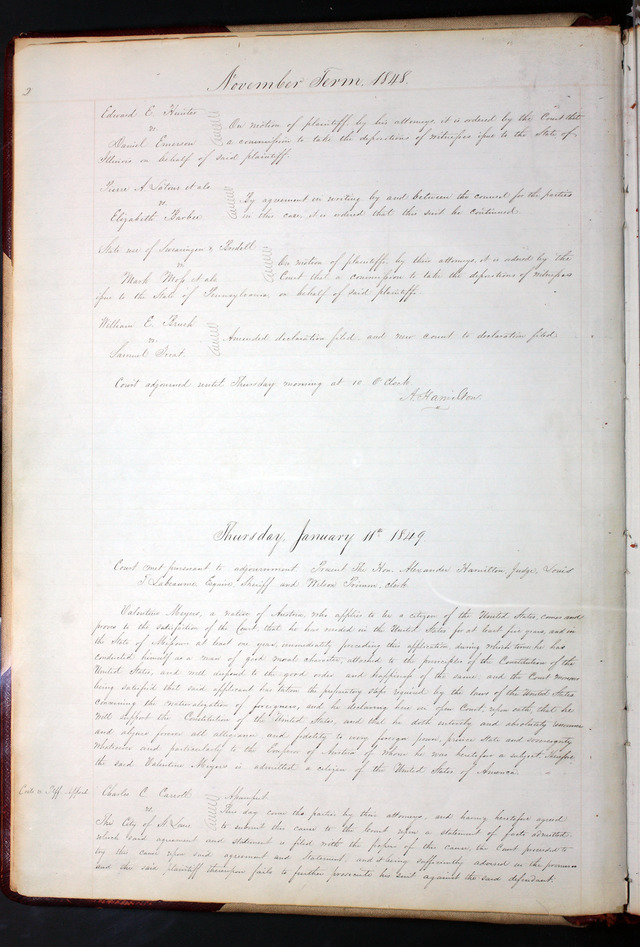 2
November Term, 1848.
Edward E. Hunter
vs.
Daniel Emerson
On motion of plaintiff, by his attorneys, it is ordered by the Court that
a commission to take the depositions of witnesses issue to the State of
Illinois on behalf of said plaintiff.
Pierre A. et als.
vs.
Elizabeth Barbee
By agreement in writing by and between the counsel for the parties
in this case, it is ordered that this suit be continued.
State use of Swearingen &
vs.
Mark Moss et als.
On motion of plaintiffs, by their attorneys, it is ordered by the
Court that a commission to take the depositions of witnesses
issue to the State of Pennsylvania, on behalf of said plaintiffs.
William E.
vs.
Samuel
Amended declaration filed, and new count to declaration filed.
Court adjourned until Thursday morning at 10 O'Clock
A. Hamilton.
Thursday, January 11th 1849.
Court met pursuant to adjournment. Present The Hon. Alexander Hamilton, Judge, Louis
T. Labeaume Esquire, Sheriff and Wilson Primm, clerk.
Valentine Meyers, a native of Austria, who applies to be a citizen of the United States, comes and
proves to the satisfaction of the Court, that he has resided in the United States for at least five years, and in
the State of Missouri at least one year, immediately preceding this application, during which time he has
conducted himself as a man of good moral character, attached to the principles of the Constitution of the
United States, and well disposed to the good order and happiness of the same; and the Court moreover
being satisfied that said applicant has taken the preparatory steps required by the laws of the United States
concerning the naturalization of foreigners, and he declaring here in open Court, upon oath, that he
will support the Constitution of the United States, and that he doth entirely and absolutely renounce
and abjure forever all allegiance and fidelity to every foreign power, prince State and sovereignty
whatever and particularly to the Emperor of Austria of whom he was heretofore a subject. Therefore
the said Valentine Meyers is admitted a citizen of the United States of America.
Costs vs. Plff. Appeal
Charles C. Carroll
vs.
The City of St Louis
Assumpsit.
This day come the parties by their attorneys, and having heretofore agreed
to submit this cause to the Court upon a statement of facts admitted,
which said agreement and statement is filed with the papers of this cause, the Court proceeded to
try the cause upon said agreement and statement, and being sufficiently advised in the premises
and the said plaintiff thereupon fails to further prosecute his suit against the said defendant.